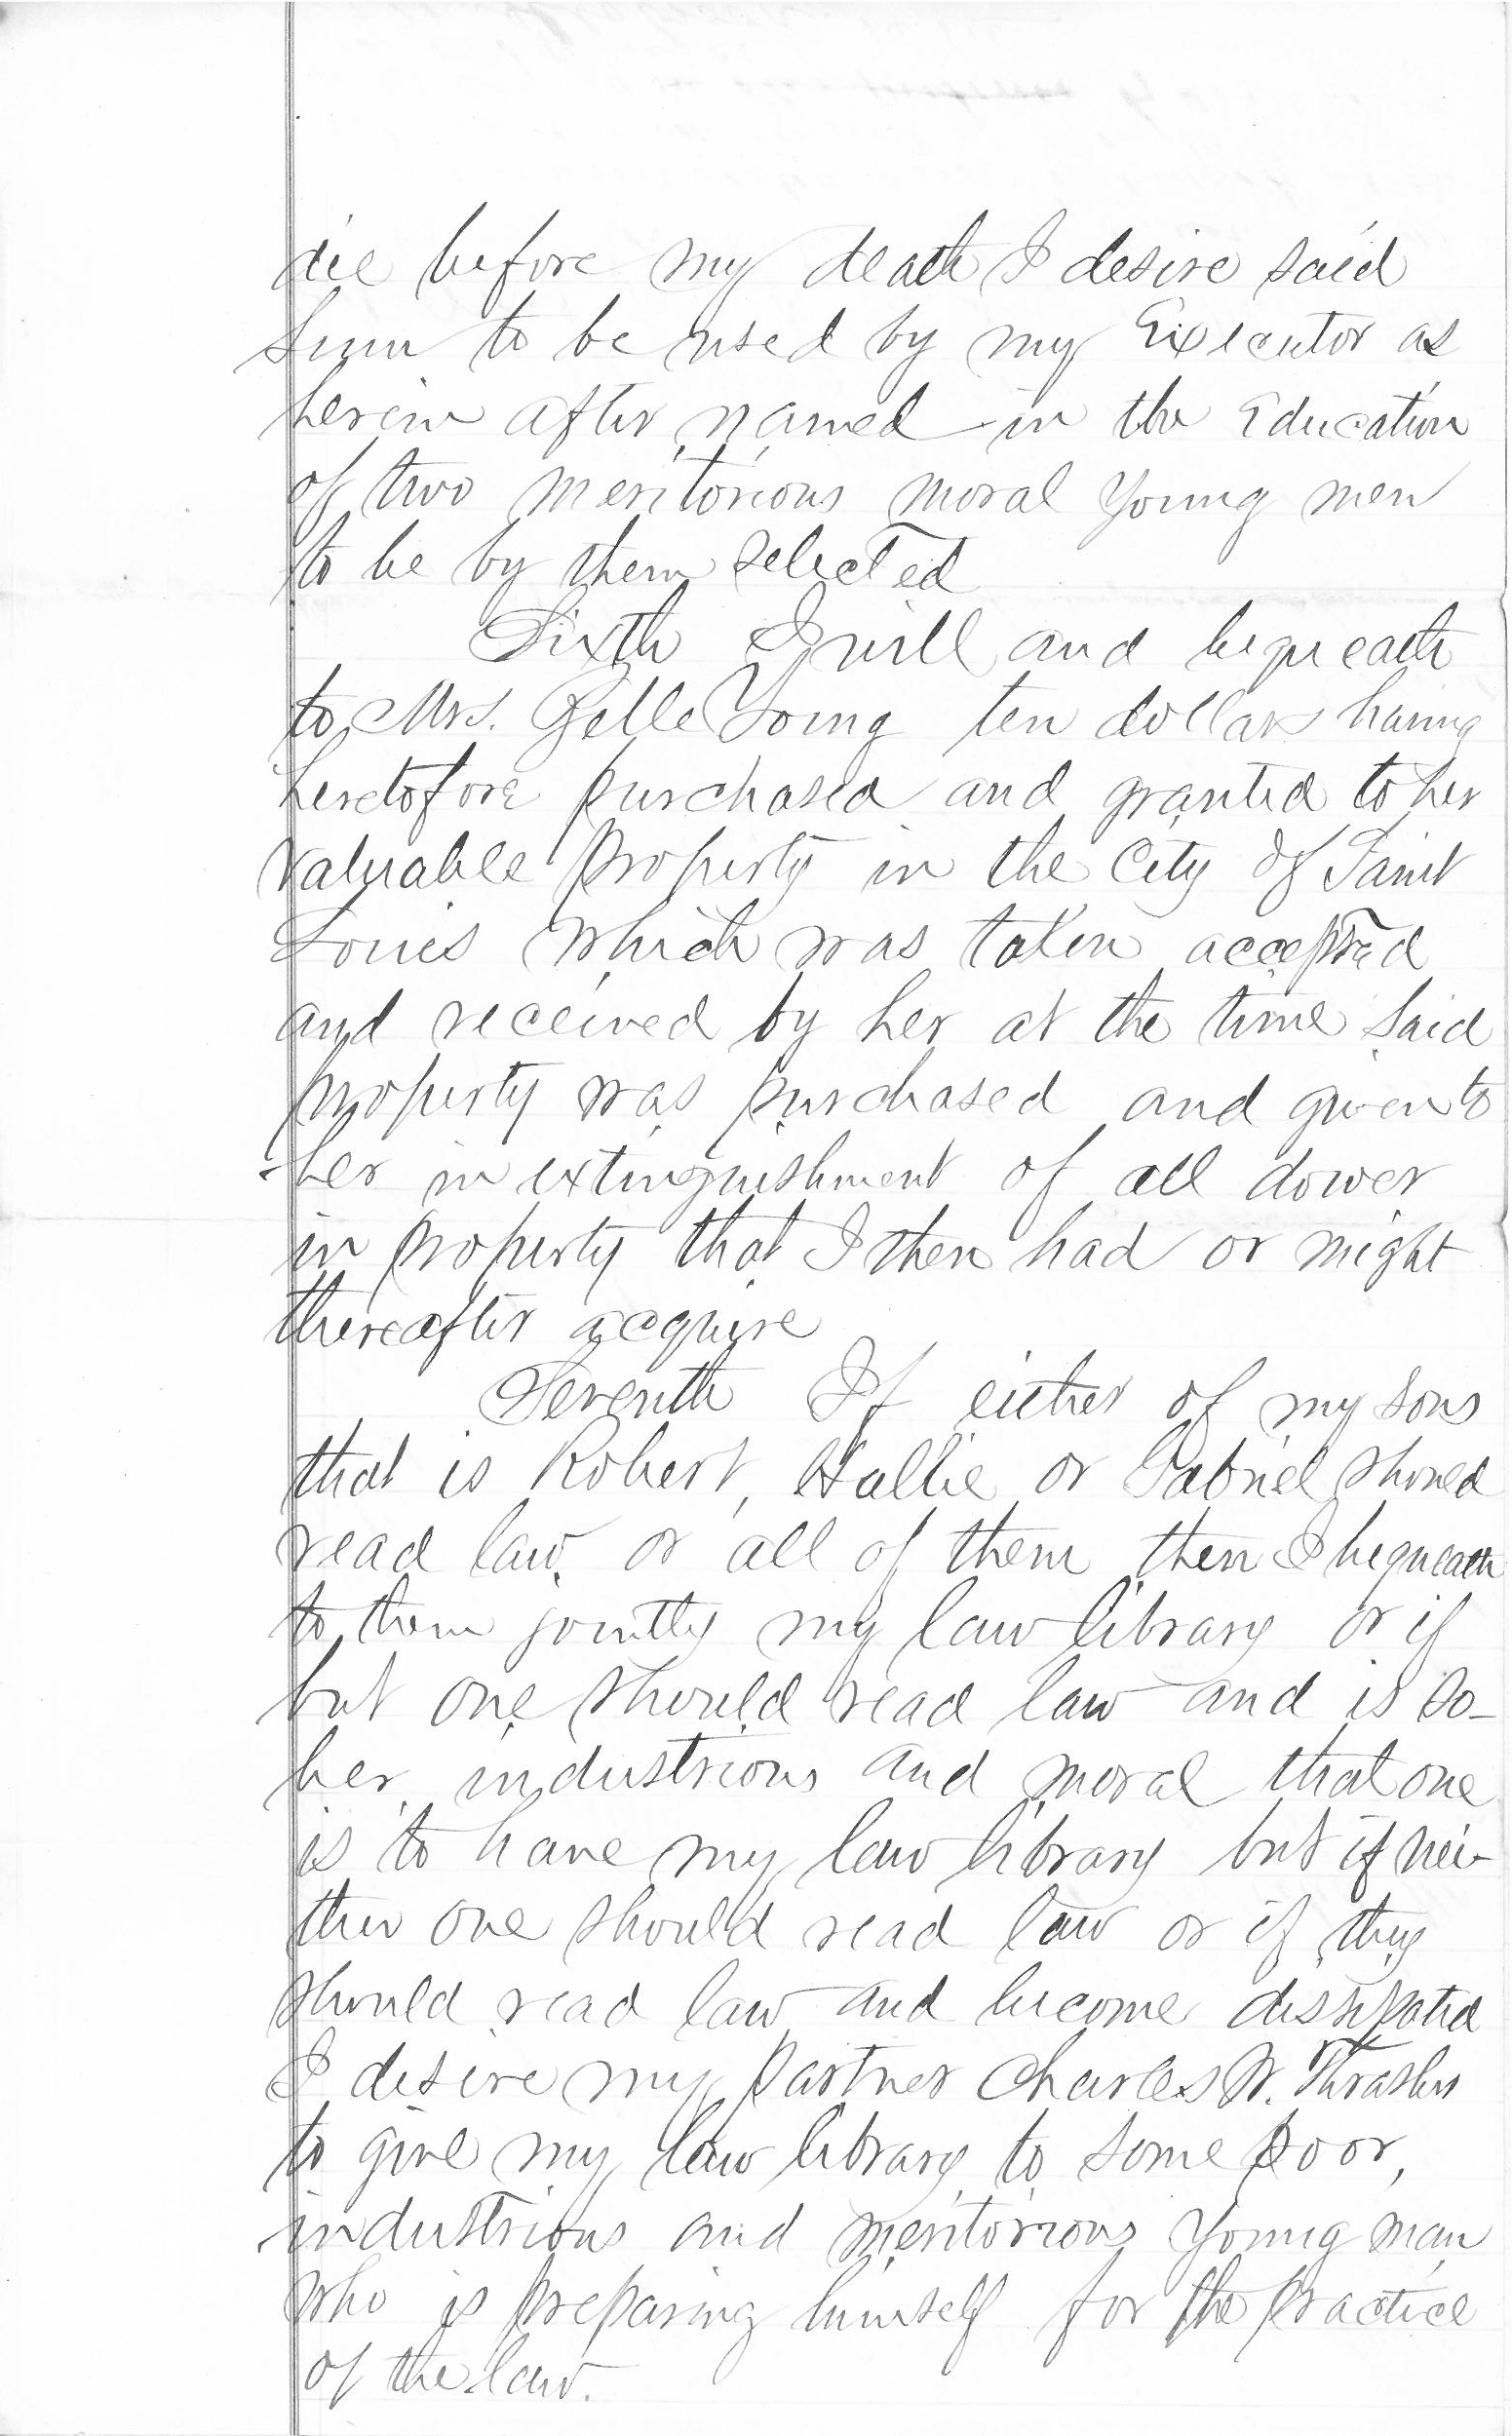 die before my death I desire said
sum to be used by my Executor as
herein after named in the Education
of two meritorious moral young men
to be by them selected
Sixth I will and bequeath
to Mrs. Belle Young ten dollars having
heretofore purchased and granted to her
valuable property in the City of Saint
Louis which was taken accepted
and received by her at the time said
property was purchased and given to
her in extinguishment of all dower
in property that I then had or might
thereafter acquire
Seventh If either of my sons
that is Robert, Hallie or Gabriel should
read law or all of them then I bequeath
to them jointly my law library or if
but one should read law and is so-
ber industrious and moral that one
is to have my law library but if nei-
ther one should read law or if they
should read law and become dissipated
I desire my partner Charles W. Thrasher
to give my law library to some poor,
industrious and meritorious young man
who is preparing himself for the practice
of the law.